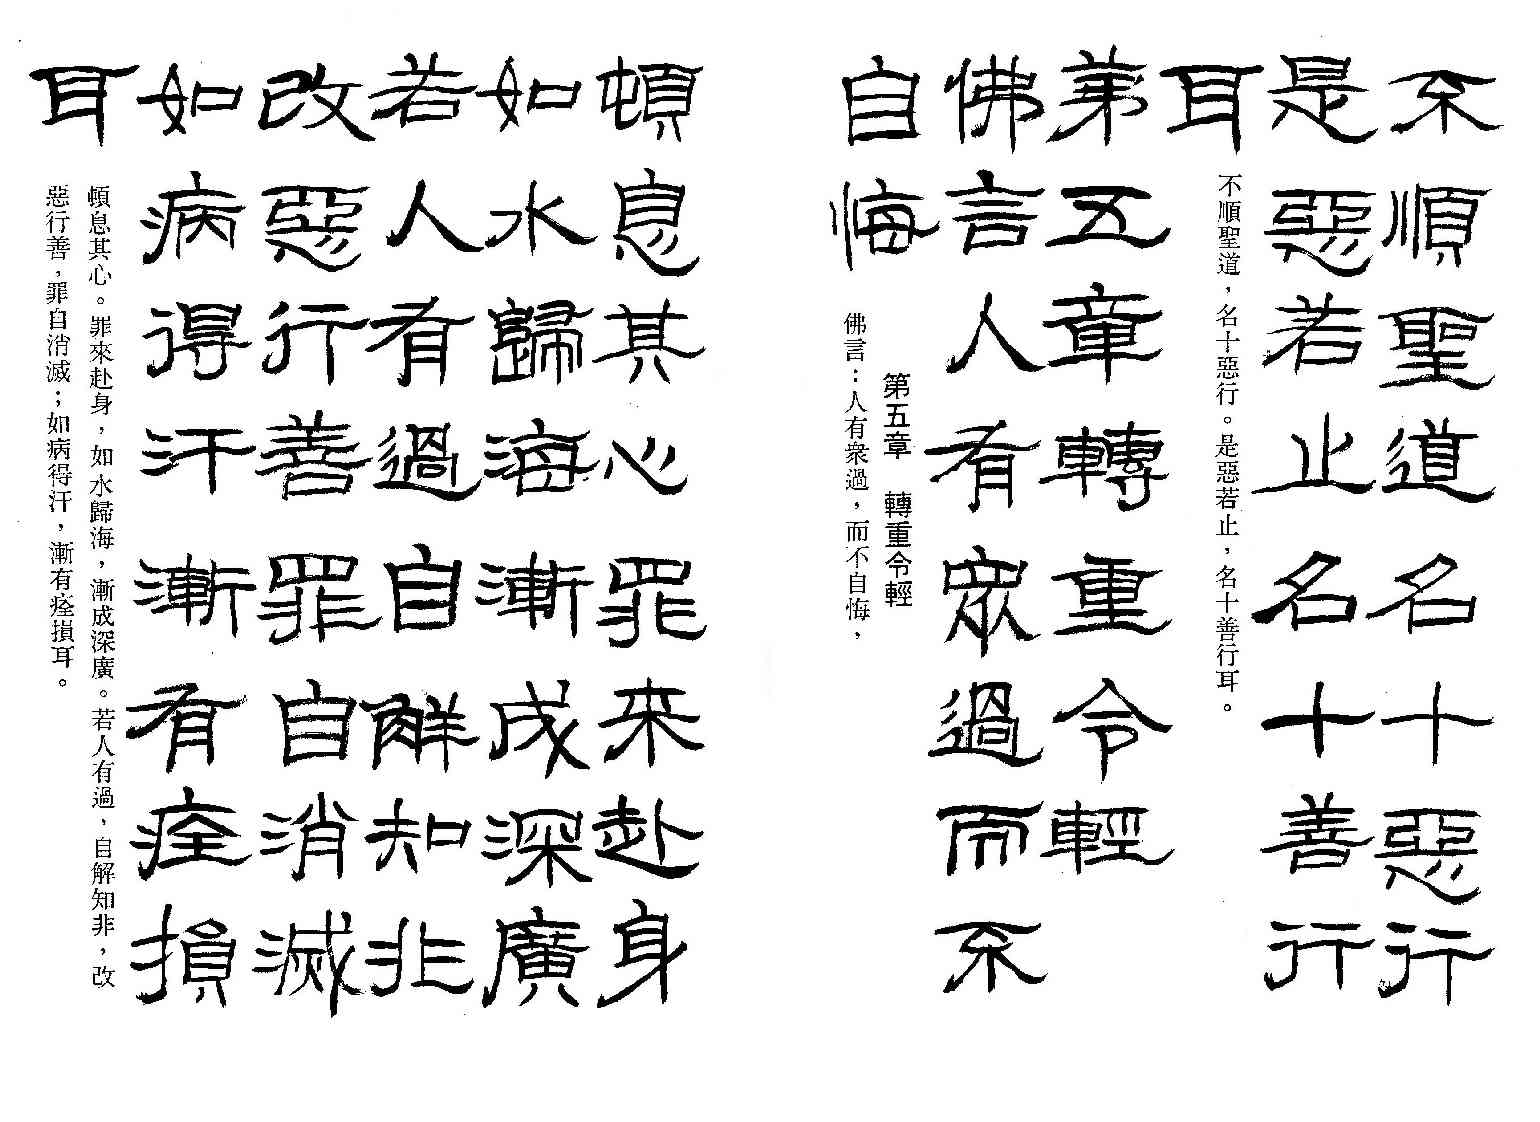 不順聖道名十惡行
是惡若止名十善行
耳
不順聖道，名十惡行。是惡若止，名十善行耳。
第五章轉重令輕
佛言人有眾過而不
自悔
第五章　轉重令輕
佛言：人有衆過，而不自悔，
頓息其心罪来赴身
如水歸海漸成深廣
若人有過自解知非
改惡行善罪自消滅
如病得汗漸有痊損
耳
頓息其心。罪來赴身，如水歸海，漸成深廣。若人有過，自解知非，改
惡行善，罪自消滅；如病得汗，漸有痊損耳。